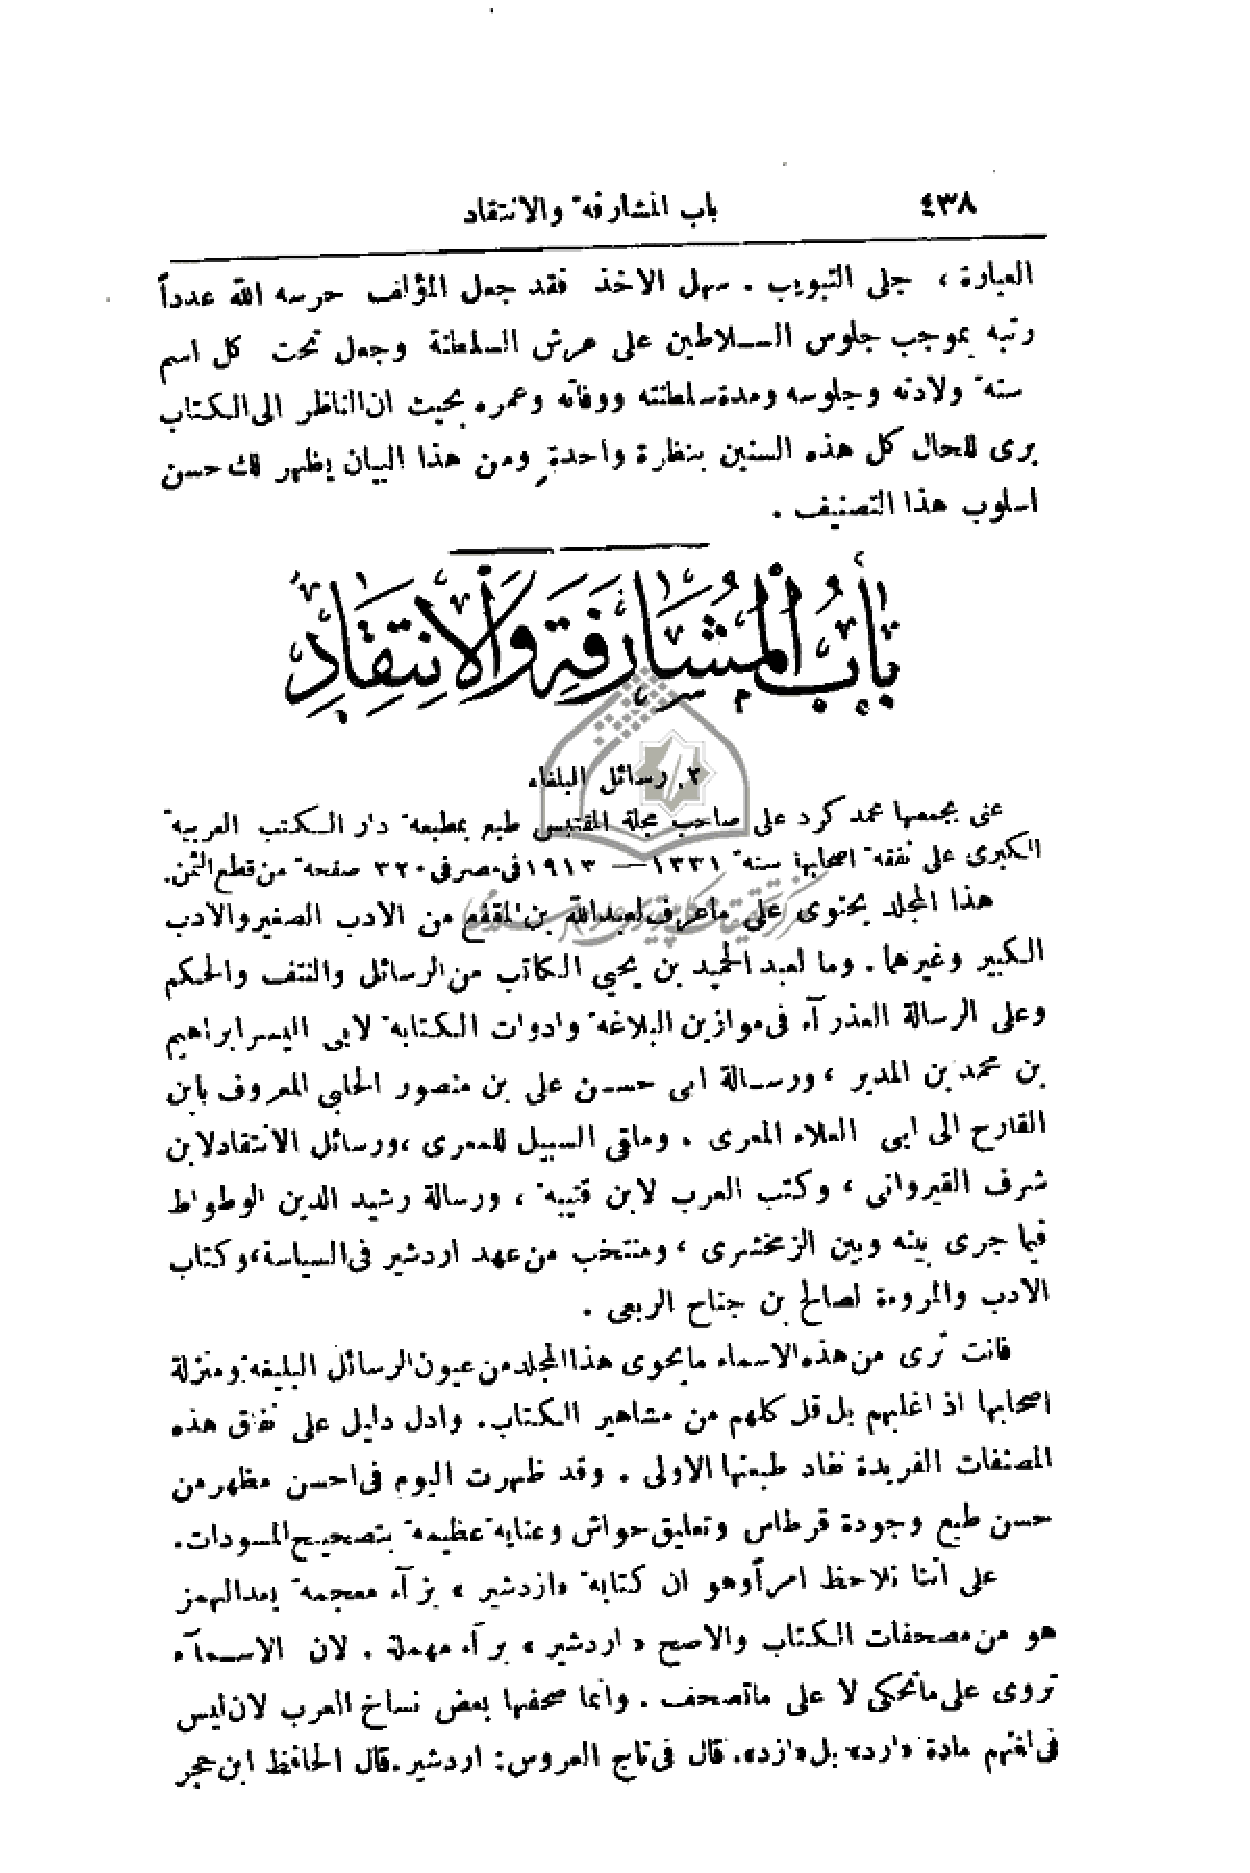 ٤٣٨ باب المشارفة والانتقاد
العبارة ، جلي التبويب . سهل الاخذ فقد جعل المؤلف حرسه الله عدداً
رتبه بموجب جلوس السلاطين على عرش السلطنة وجعل تحت كل اسم
سنة ولادته وجلوسه ومدة سلطنته ووفاته وعمره بحيث ان الناظر الى الكتاب
يرى للحال كل هذه السنين بنظرة واحدةٍ ومن هذا البيان يظهر لك حسن
اسلوب هذا التصنيف .
بَابُ الْمُشَارَفَةِ وَالْاِنْتِقَادِ
٣. رسائل البلغاء
عني بجمعها محمد كرد علي صاحب مجلة المقتبس طبع بمطبعة دار الكتب العربية
الكبرى على نفقة اصحابها سنة ١٣٣١ — ١٩١٣ في مصر في ٣٢٠ صفحة من قطع الثمن.
هذا المجلد يحتوي على ما عرف لعبد الله بن المقفع من الادب الصغير والادب
الكبير وغيرهما . وما لعبد الحميد بن يحيى الكاتب من الرسائل والنتف والحكم
وعلى الرسالة العذرآء في موازين البلاغة وادوات الكتابة لابي اليسر ابراهيم
بن محمد بن المدبر ، ورسالة ابي حسن علي بن منصور الحلبي المعروف بابن
القارح الى ابي العلاء المعري . وملقى السبيل للمعري ، ورسائل الانتقاد لابن
شرف القيرواني ، وكتب العرب لابن قتيبة ، ورسالة رشيد الدين الوطواط
فيما جرى بينه وبين الزمخشري ، ومنتخب من عهد اردشير في السياسة، وكتاب
الادب والمروءة لصالح بن جناح الربعي .
فانت ترى من هذه الاسماء ما يحوي هذا المجلد من عيون الرسائل البليغة ومنزلة
اصحابها اذ اغلبهم بل قل كلهم من مشاهير الكتاب . وادل دليل على نفاق هذه
المصنفات الفريدة نفاد طبعتها الاولى . وقد ظهرت اليوم في احسن مظهر من
حسن طبع وجودة قرطاس وتعليق حواش وعناية عظيمة بتصحيح المسودات.
على اننا نلاحظ امراً وهو ان كتابة «ازدشير» بزآء معجمة بعد الهمز
هو من مصحفات الكتاب والاصح «اردشير» برآء مهملة . لان الاسمآء
تروى على ما تحكى لا على ما تصحف . وانما صحفها بعض نساخ العرب لان ليس
في لغتهم مادة «ارد» بل «ازد». قال في تاج العروس: اردشير. قال الحافظ ابن حجر